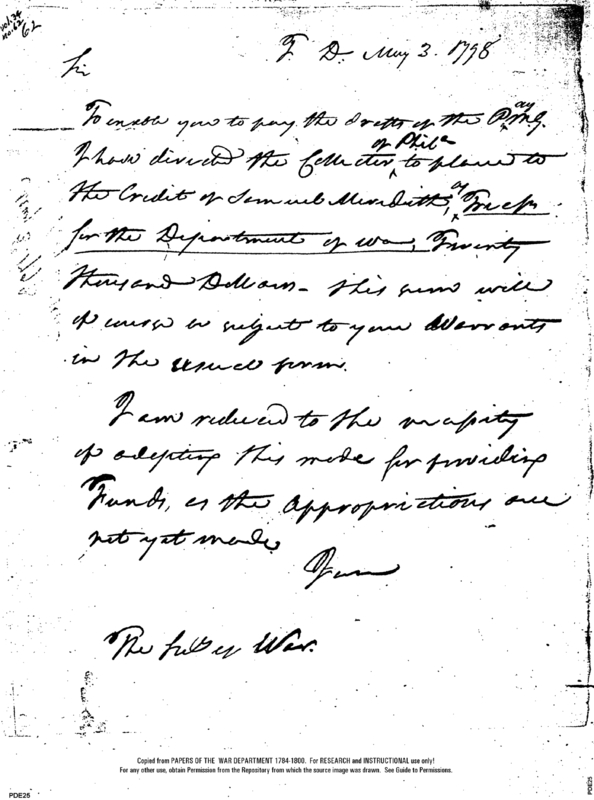 vol. 24
No. 62
62
T D. May 3. 1798
Sir
To enable you to pay the drafts of the Pay M. G.
I have directed the Collector of Phila to place to
the Credit of Samuel Meredith, as Treasr
for the Department of War, Twenty
thousand Dollars - this sum will
of course be subject to your Warrants
in the usual form.
I am reduced to the necessity
of adopting this mode for providing
Funds, as the appropriations are
not yet made
I am
The Secy of War.
Copied from PAPERS OF THE WAR DEPARTMENT 1784-1800. For RESEARCH and INSTRUCTIONAL use only!
For any other use, obtain Permission from the Repository from which the source image was drawn. See Guide to Permissions.
PDE25
PDE25